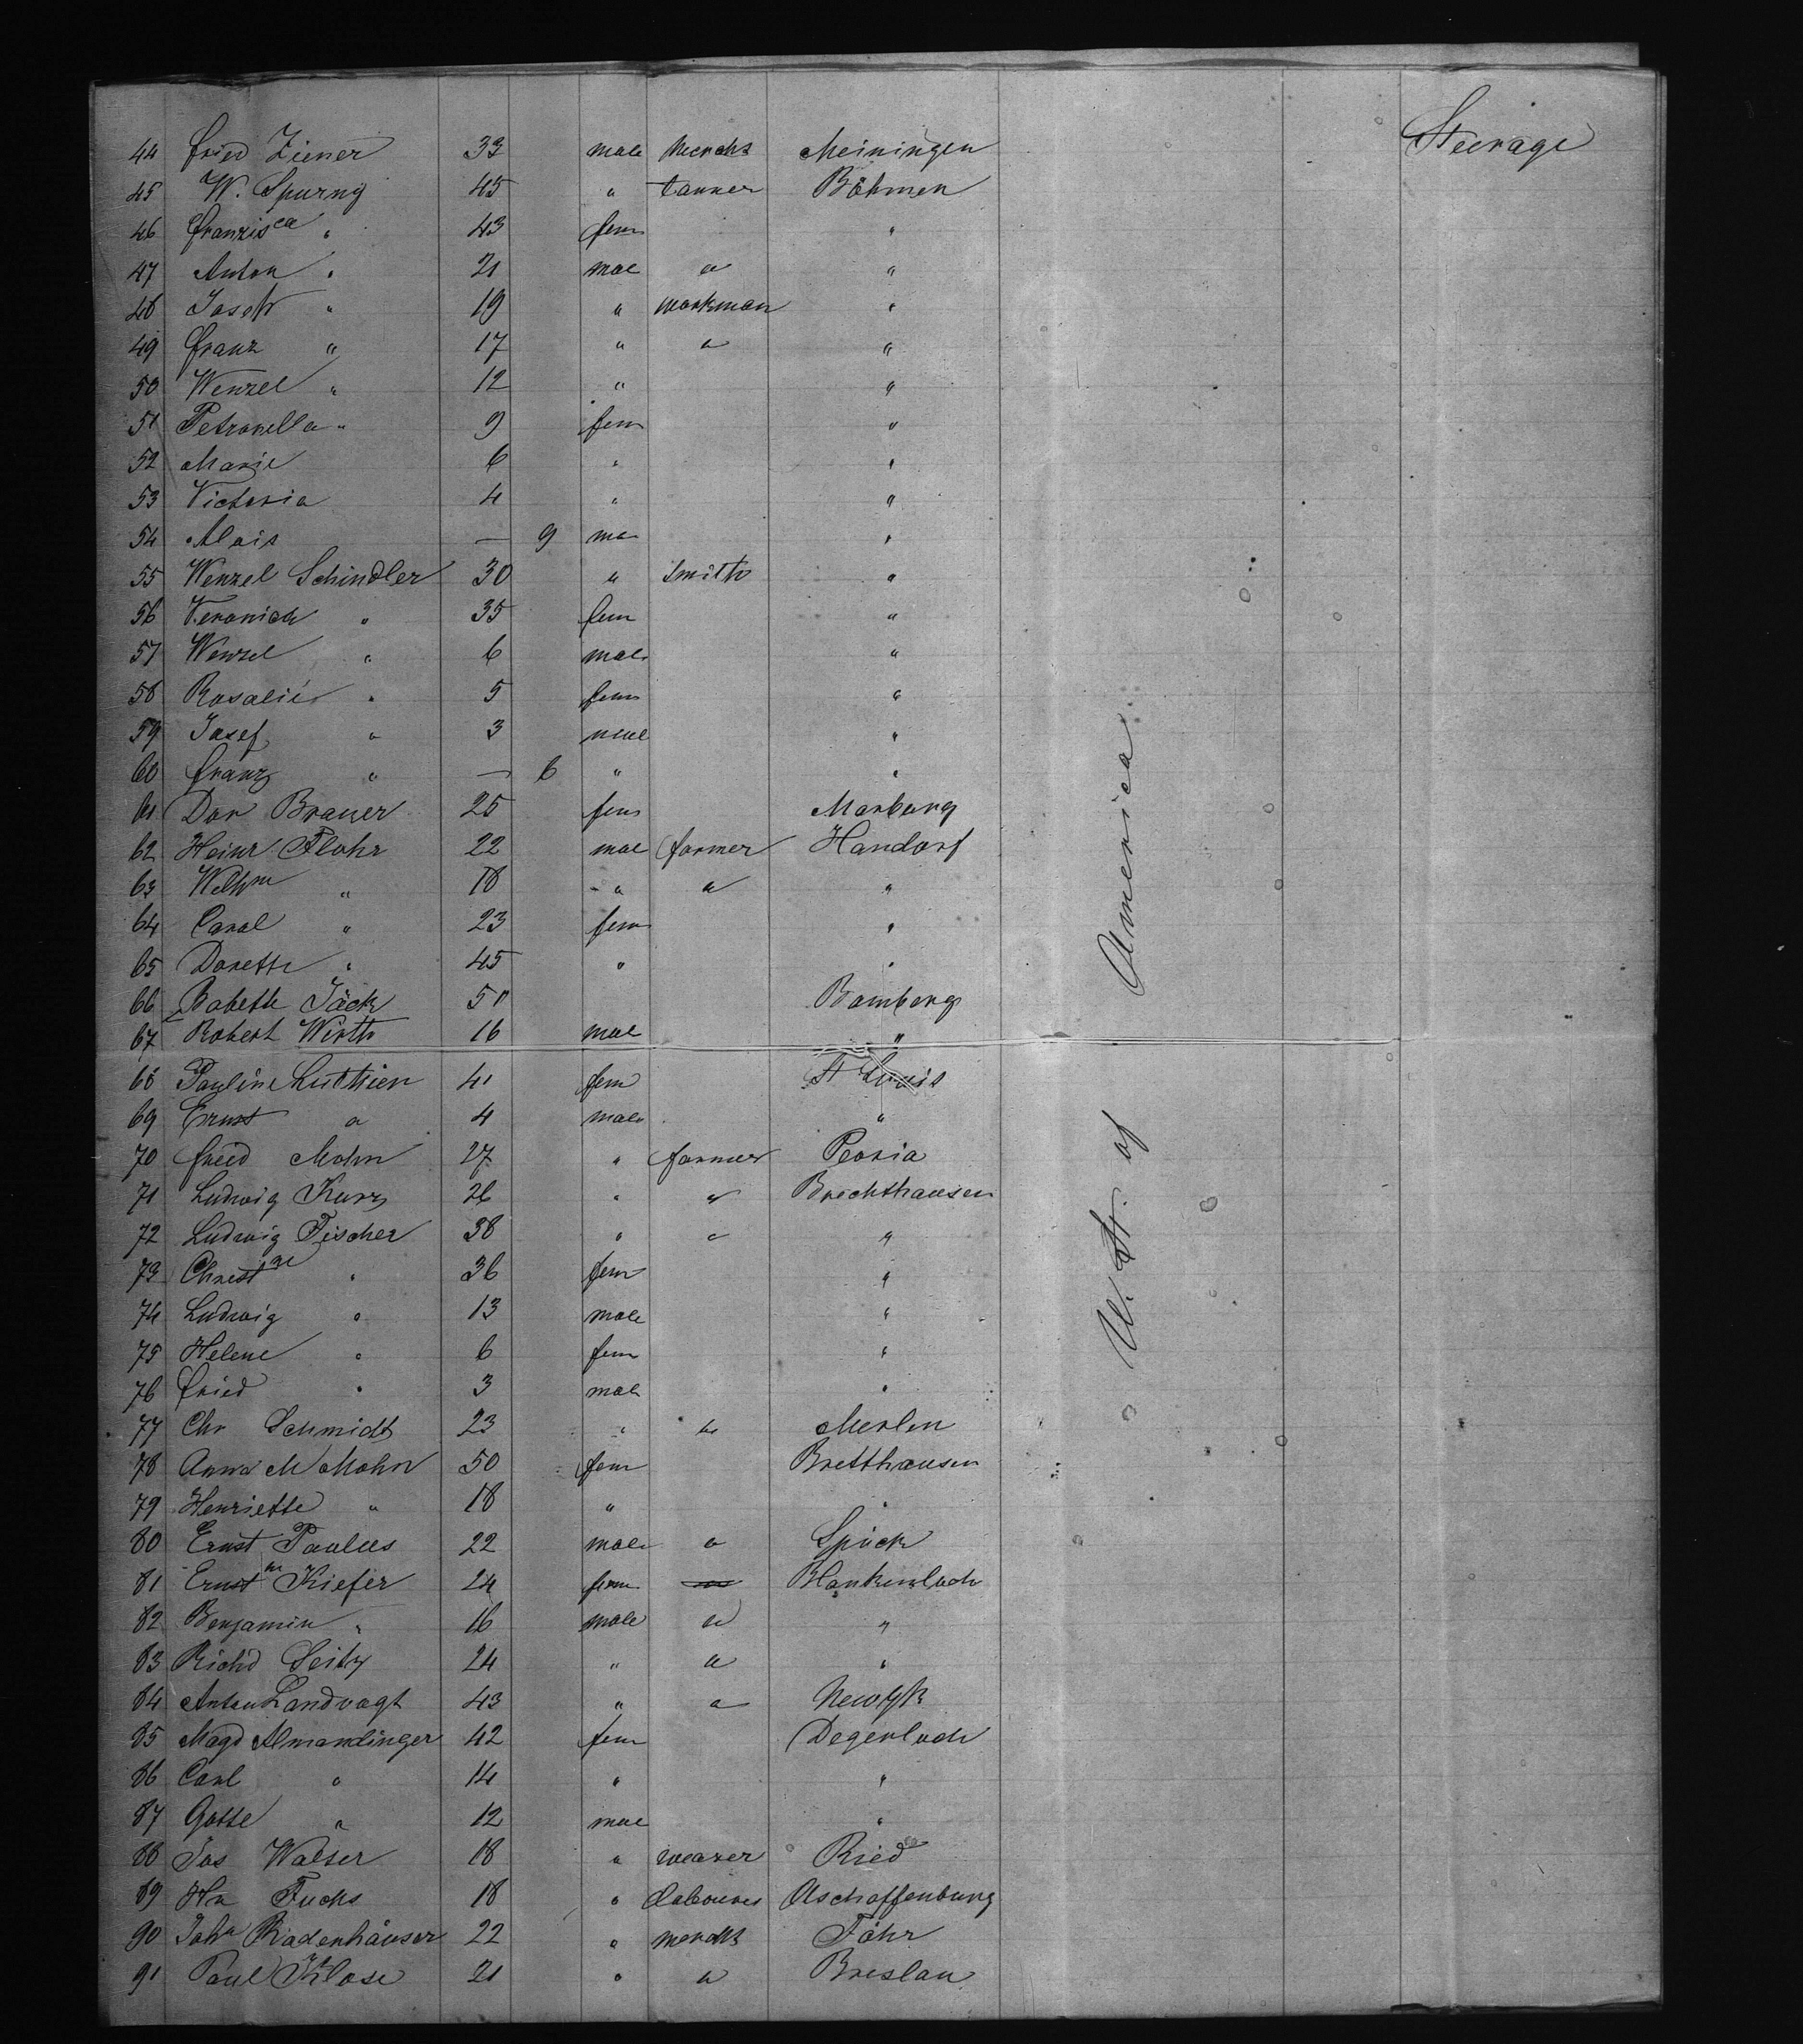 Steerage
44 Fried Ziener 33 male Merchts Meiningen
45 W. Spurny 45 " tanner Böhmen
46 Franzisca " 43 fem "
47 Anton " 21 mal " "
48 Josef " 19 " workman "
49 Franz " 17 " " "
50 Wenzel " 12 " "
51 Petronella " 9 fem "
52 Marie 6 " "
53 Victoria 4 " "
54 Alois — 9 ma "
55 Wenzel Schindler 30 " Smith "
56 Veronica " 35 fem "
57 Wenzel " 6 male "
58 Rosalie " 5 fem "
59 Josef " 3 mal "
60 Franz " — 6 " "
61 Dor Brauer 25 fem Marburg
62 Heinr Flohr 22 mal farmer Handorf
63 Wilhm " 18 " " "
64 Carol " 23 fem "
65 Dorette " 45 " "
66 Babette Jäck 50 Bamberg
67 Robert Wirth 16 mal "
68 Pauline Luthien 41 fem St Louis
69 Ernst " 4 male "
70 Fried Mohn 27 " farmer Peoria
71 Ludwig Kurz 26 " " Brechthausen
72 Ludwig Fischer 38 " " "
73 Christne " 36 fem "
74 Ludwig " 13 male "
75 Helene " 6 fem "
76 Fried " 3 male "
77 Chr Schmidt 23 " " Merlen
78 Anna M Mohn 50 fem Bretthausen
79 Henriette " 18 " "
80 Ernst Paulus 22 male " Spöck
81 Ernstne Kiefer 24 fem Blankenloch
82 Benjamin " 16 male " "
83 Richd Seitz 24 " " "
84 Anton Landvogt 43 " " New Yk
85 Magd Almandinger 42 fem Degerloch
86 Carl " 14 " "
87 Gotte " 12 mal "
88 Jos Walser 18 " weaver Ried
89 Hn Fuchs 18 " labourer Aschaffenburg
90 John Radenhäuser 22 " merchts Föhr
91 Paul Klose 21 " " Breslau
U. St. of America.